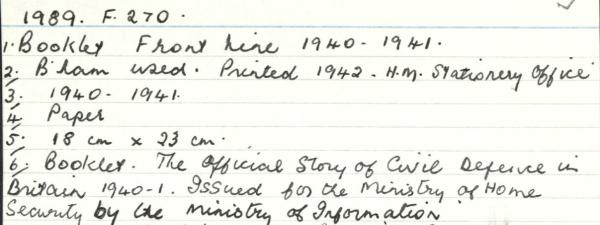 1989. F. 270.
1. Booklet Front Line 1940-1941.
2. B'ham used. Printed 1942. H.M. Stationery Office
3. 1940-1941.
4. Paper
5. 18 cm x 23 cm.
6. Booklet. The Official Story of Civil Defence in
Britain 1940-1. Issued for the Ministry of Home
Security by the Ministry of Information